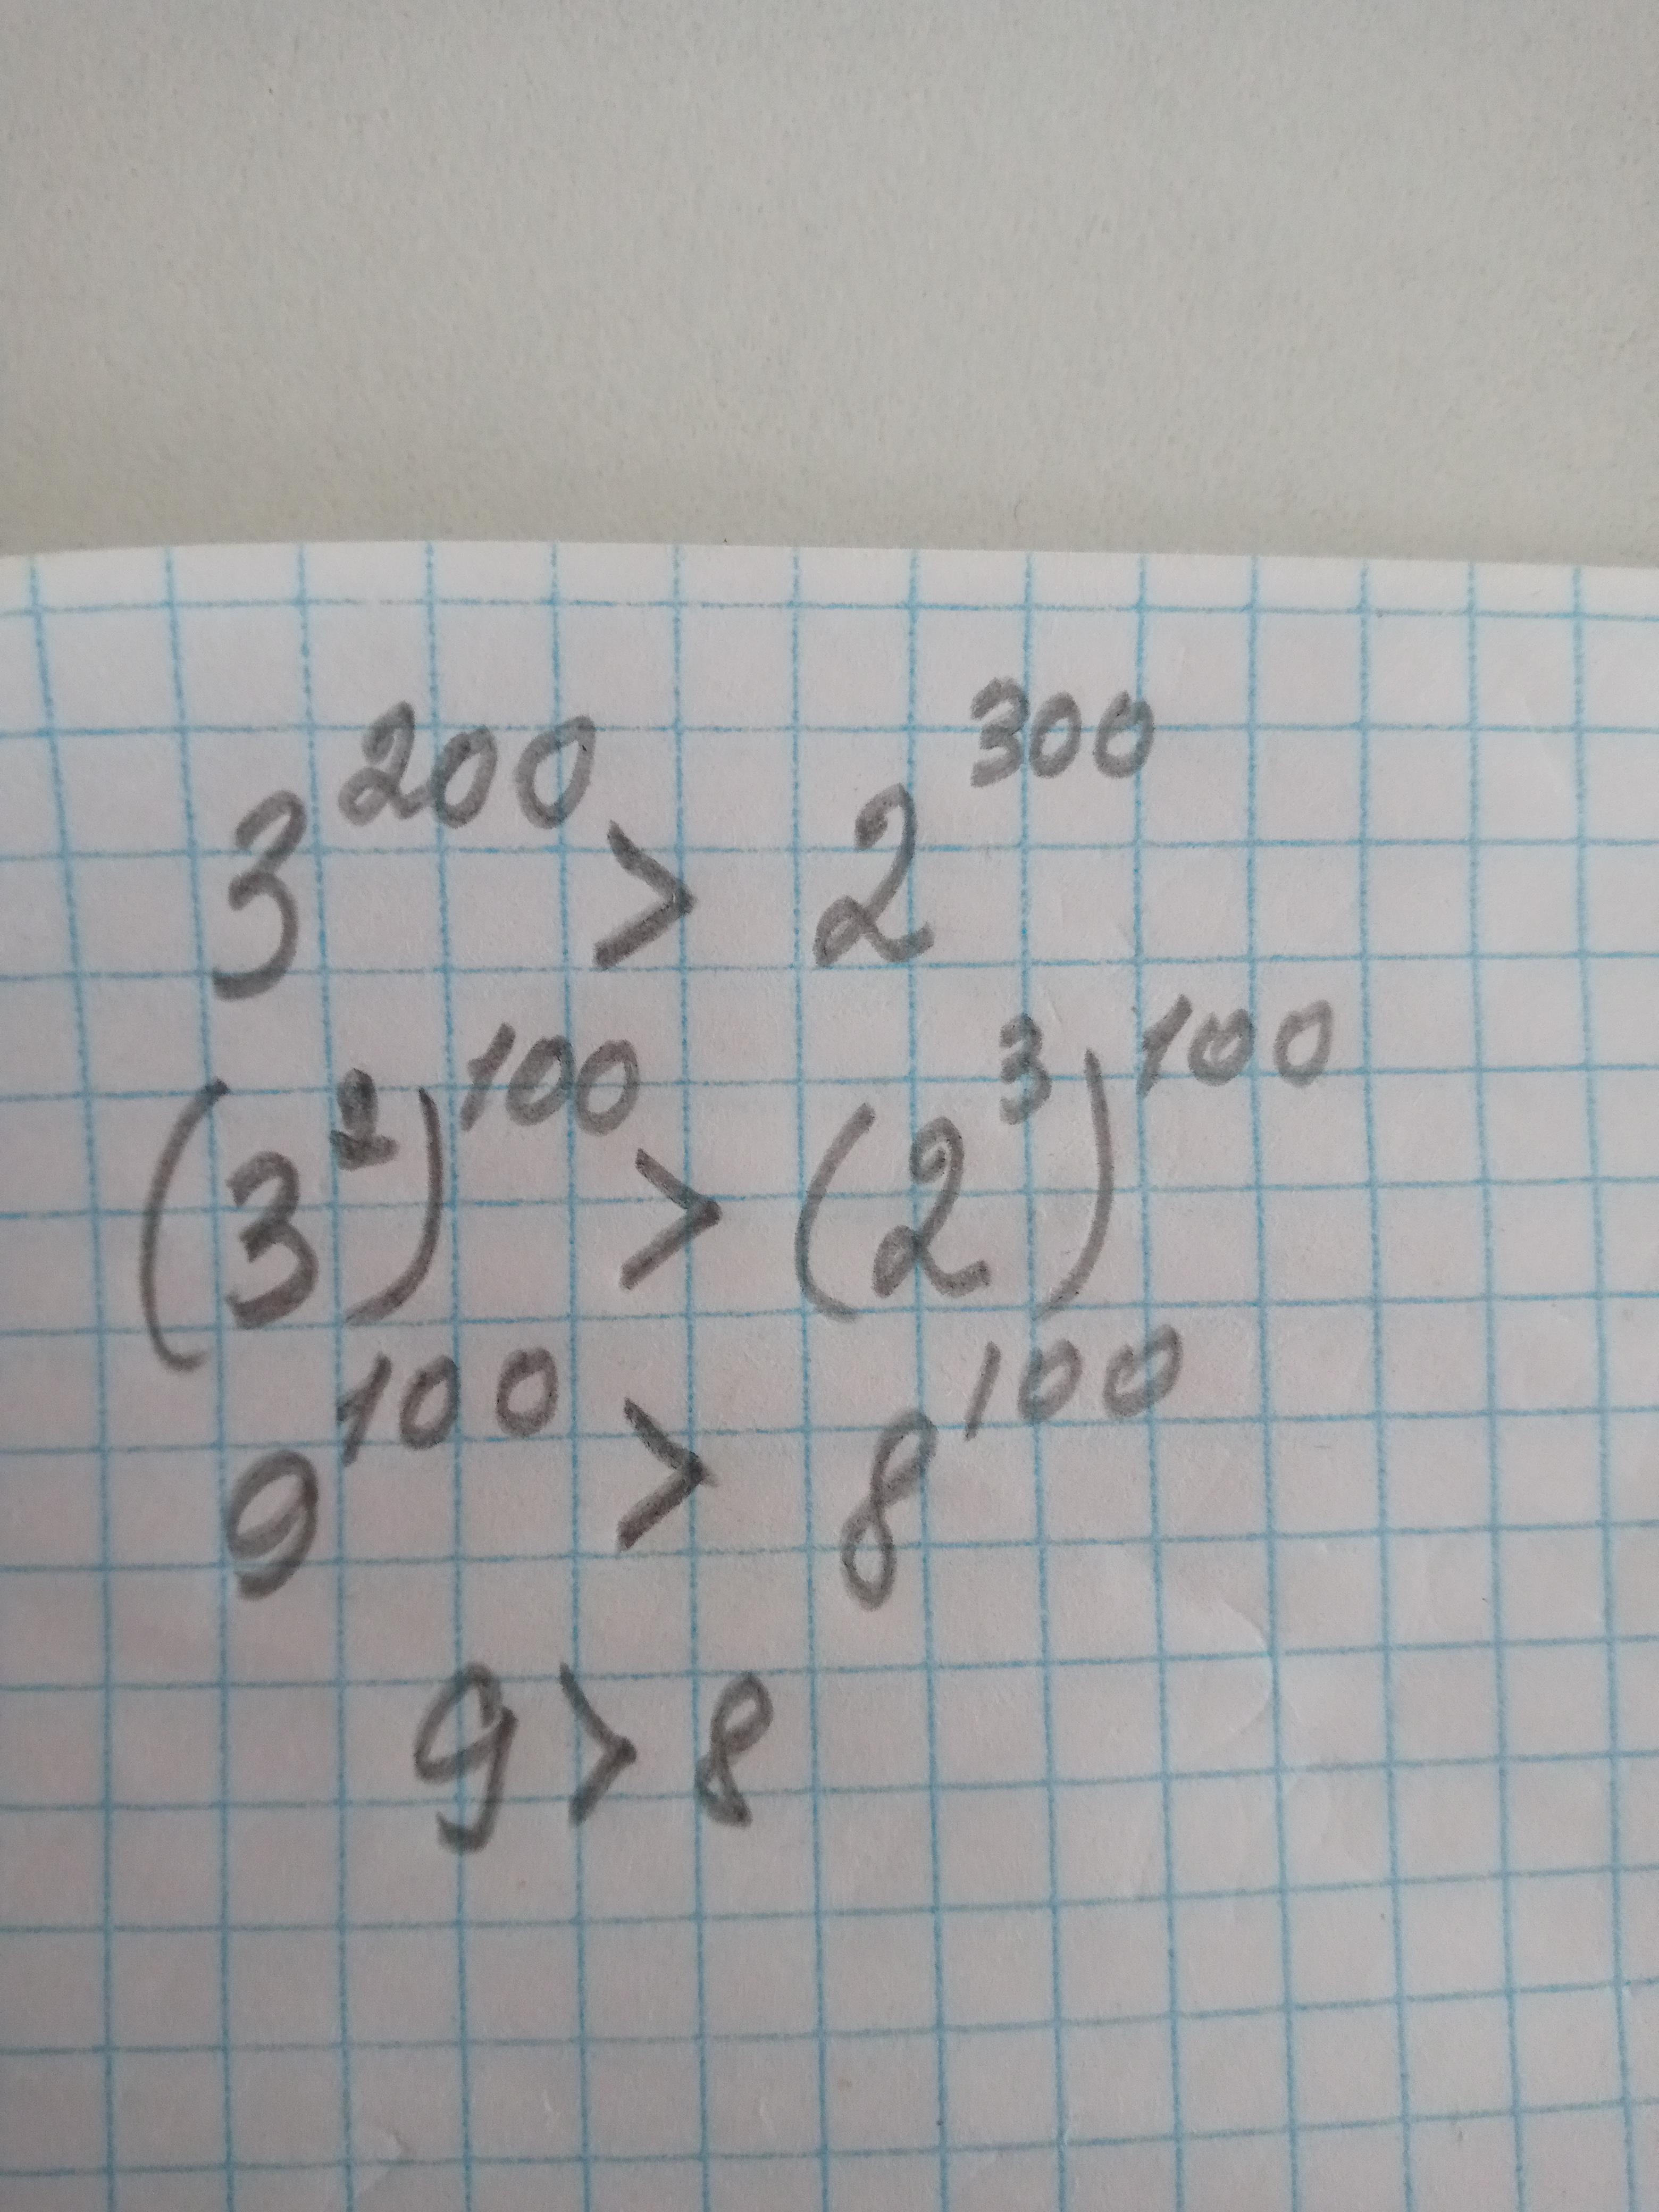 3^200 > 2^300
(3^2)^100 > (2^3)^100
9^100 > 8^100
9 > 8